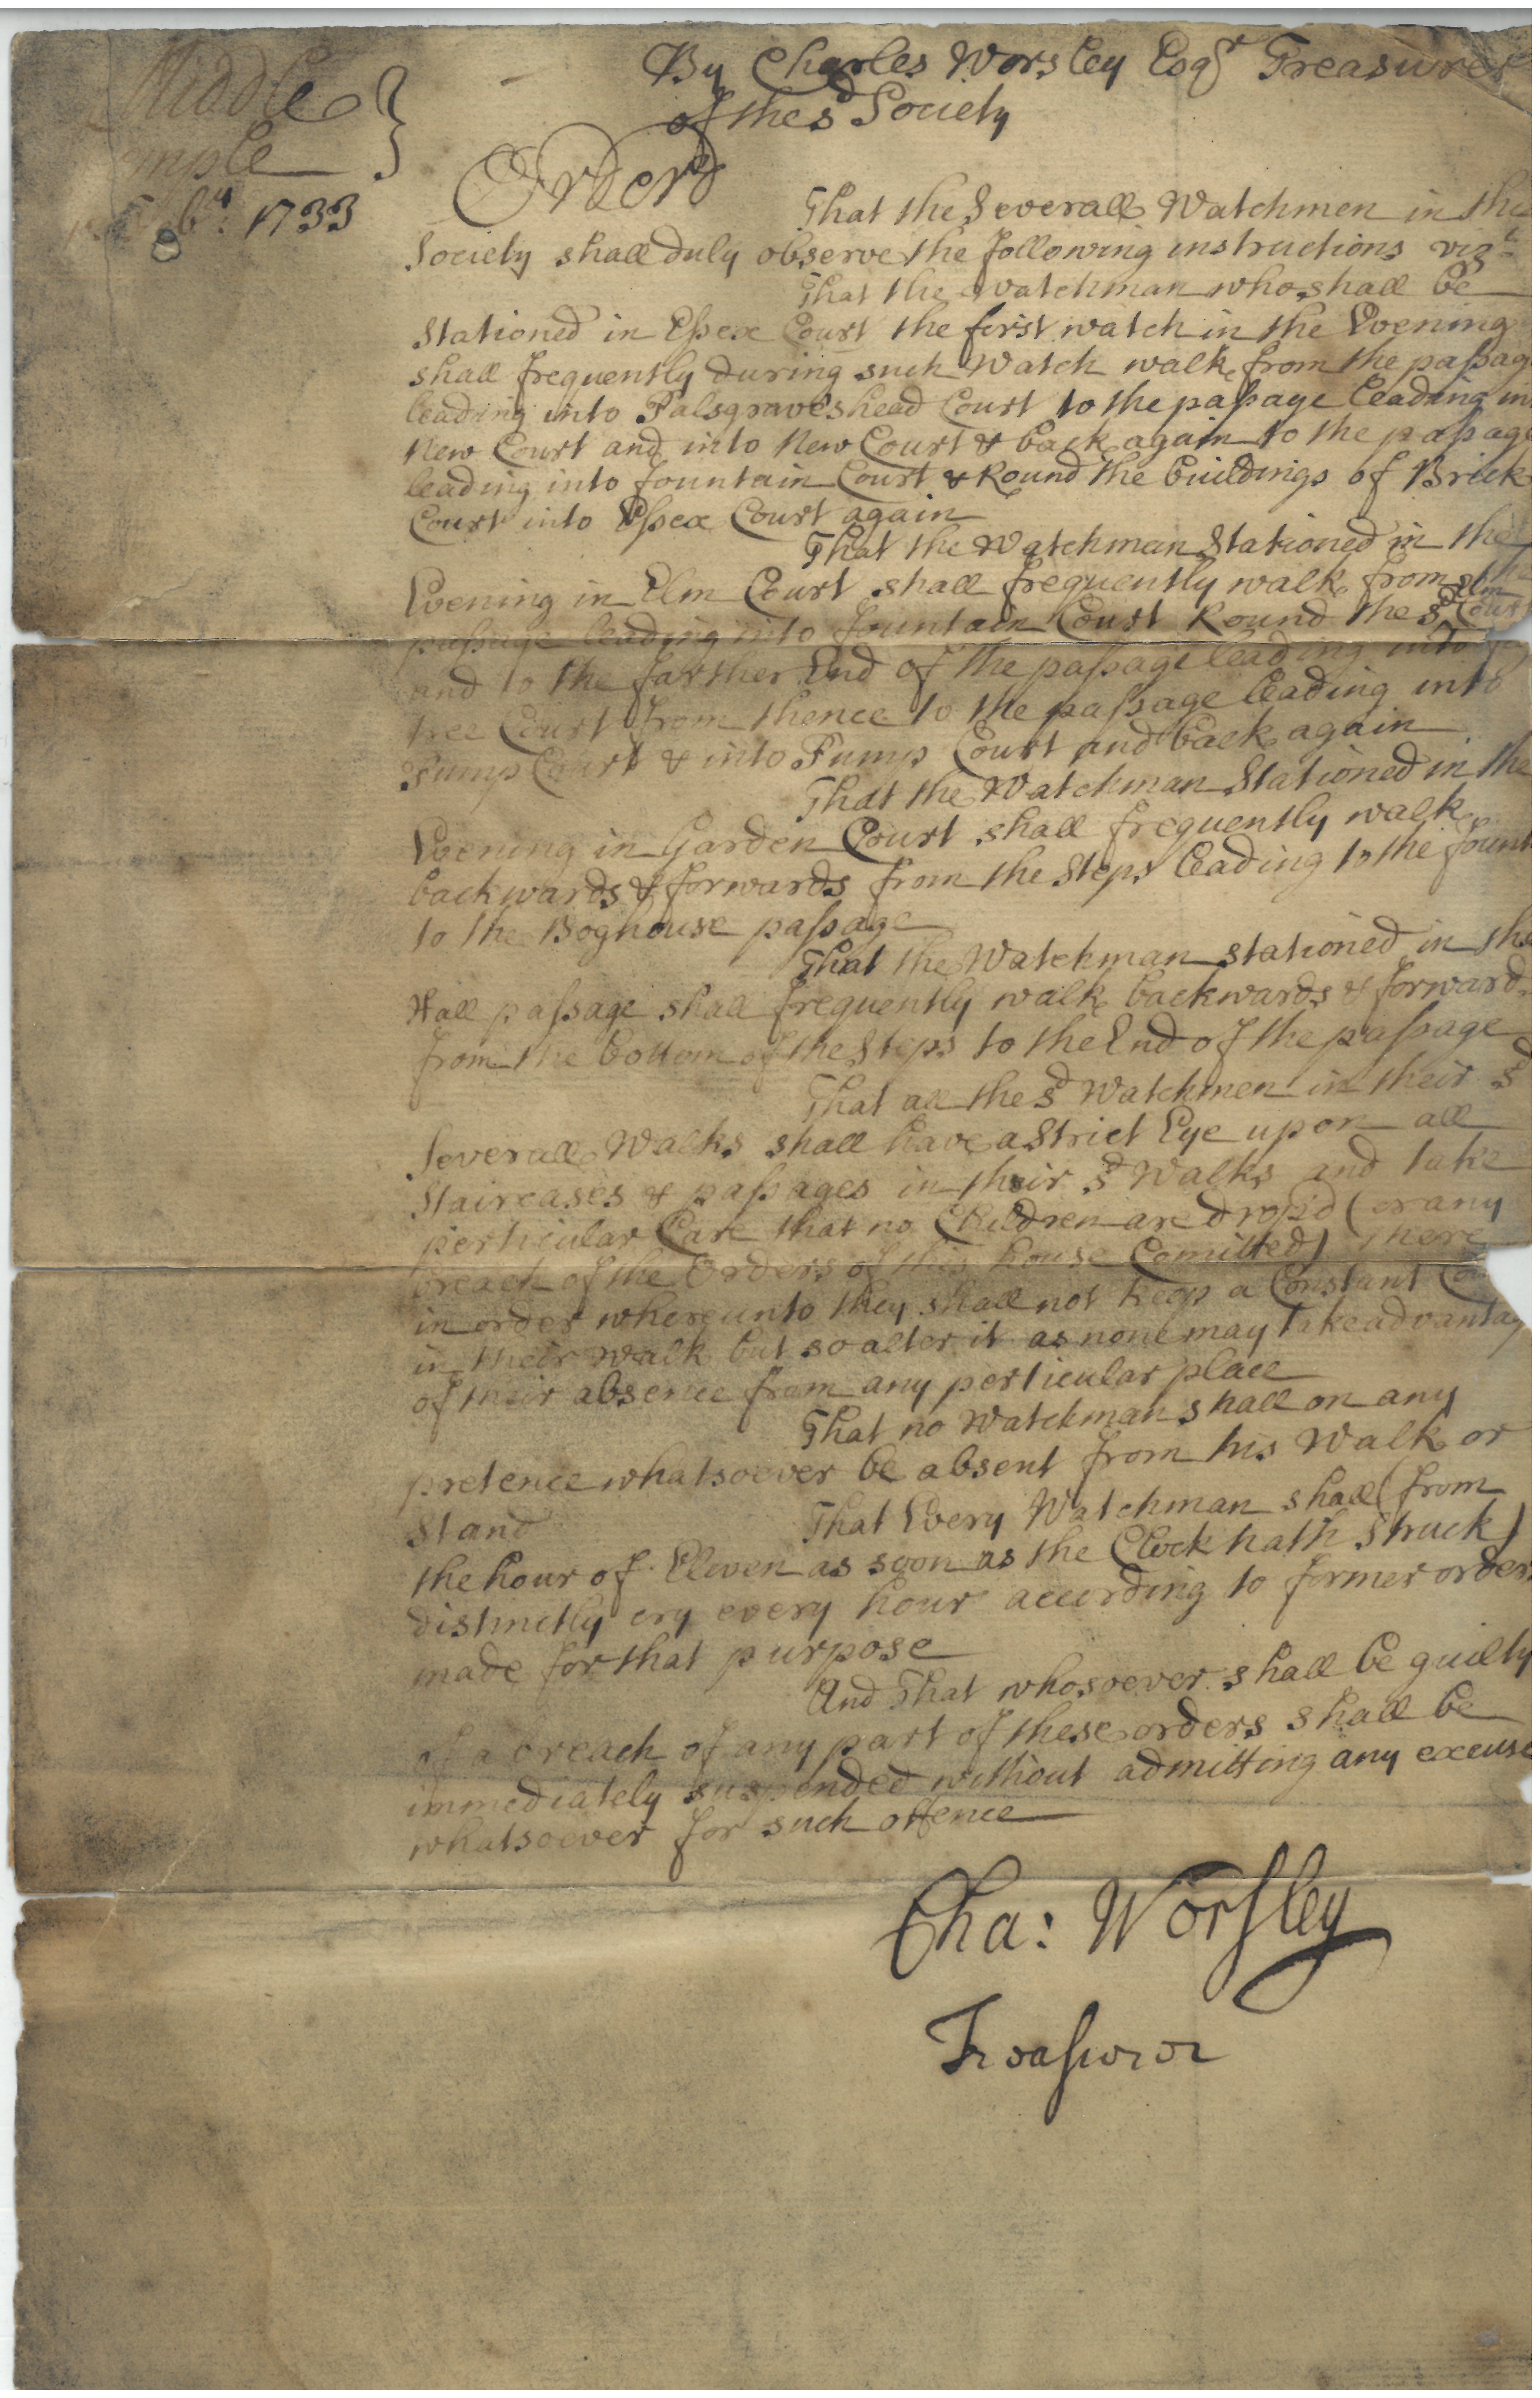 Middle
mple
8b:r 1733
By Charles Worsley Esqr Treasurer
of the sd Society
Orderd
That the Severall Watchmen in the
Society shall duly observe the following instructions vizt
That the Watchman who shall be
Stationed in Essex Court the first watch in the Evening
shall frequently during such Watch walk from the passag
leading into Palsgraveshead Court to the passage leading in
New Court and into New Court & back again to the passage
leading into fountain Court & Round the buildings of Brick
Court into Essex Court again
That the Watchman Stationed in the
Evening in Elm Court shall frequently walk from the
passage leading into fountain Court Round the sd Elm Court
and to the farther End of the passage leading into
tree Court from thence to the passage leading into
Pump Court & into Pump Court and back again
That the Watchman Stationed in the
Evening in Garden Court shall frequently walk
backwards & forwards from the Steps leading to the fount
to the Boghouse passage
That the Watchman stationed in the
Hall passage shall frequently walk backwards & forwards
from the bottom of the Steps to the End of the passage
That all the sd Watchmen in their sd
Severall Walks shall have a Strict Eye upon all
Staircases & passages in their sd Walks and take
perticular Care that no Children are drop'd (or any
breach of the Orders of this house Comitted) there
in order whereunto they shall not keep a Constant Cou
in their walk but so alter it as none may take advantag
of their absence from any perticular place
That no Watchman shall on any
pretence whatsoever be absent from his Walk or
Stand
That Every Watchman shall (from
the hour of Eleven as soon as the Clock hath Struck)
distinctly cry every hour according to former orders
made for that purpose
And That whosoever shall be guilty
of a breach of any part of these orders shall be
immediately suspended without admitting any excuse
whatsoever for such offence
Cha: Worsley
Treasurer